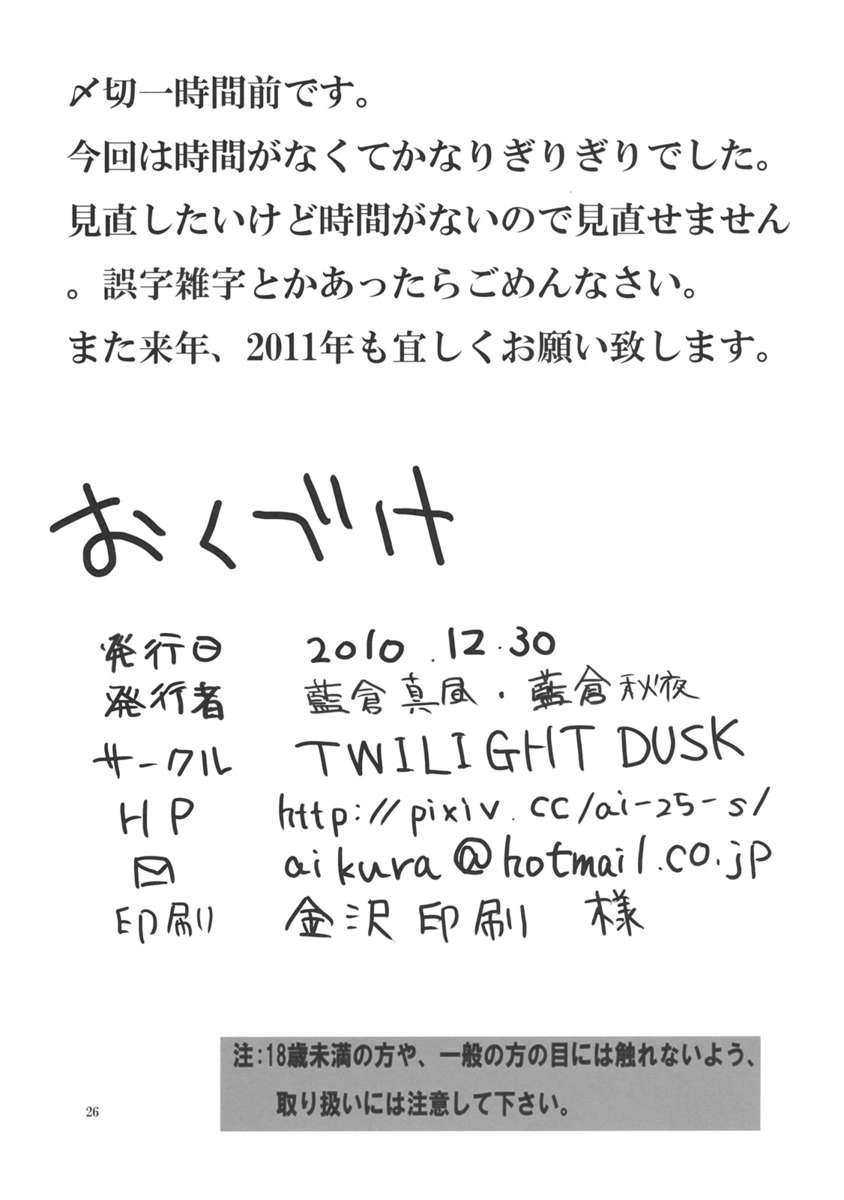 〆切一時間前です。
今回は時間がなくてかなりぎりぎりでした。
見直したいけど時間がないので見直せません
。誤字雑字とかあったらごめんなさい。
また来年、2011年も宜しくお願い致します。
おくづけ
発行日 2010.12.30
発行者 藍倉真昼・藍倉秋夜
サークル TWILIGHT DUSK
HP http://pixiv.cc/ai-25-s/
aikura@hotmail.co.jp
印刷 金沢印刷 様
注:18歳未満の方や、一般の方の目には触れないよう、
取り扱いには注意して下さい。
26